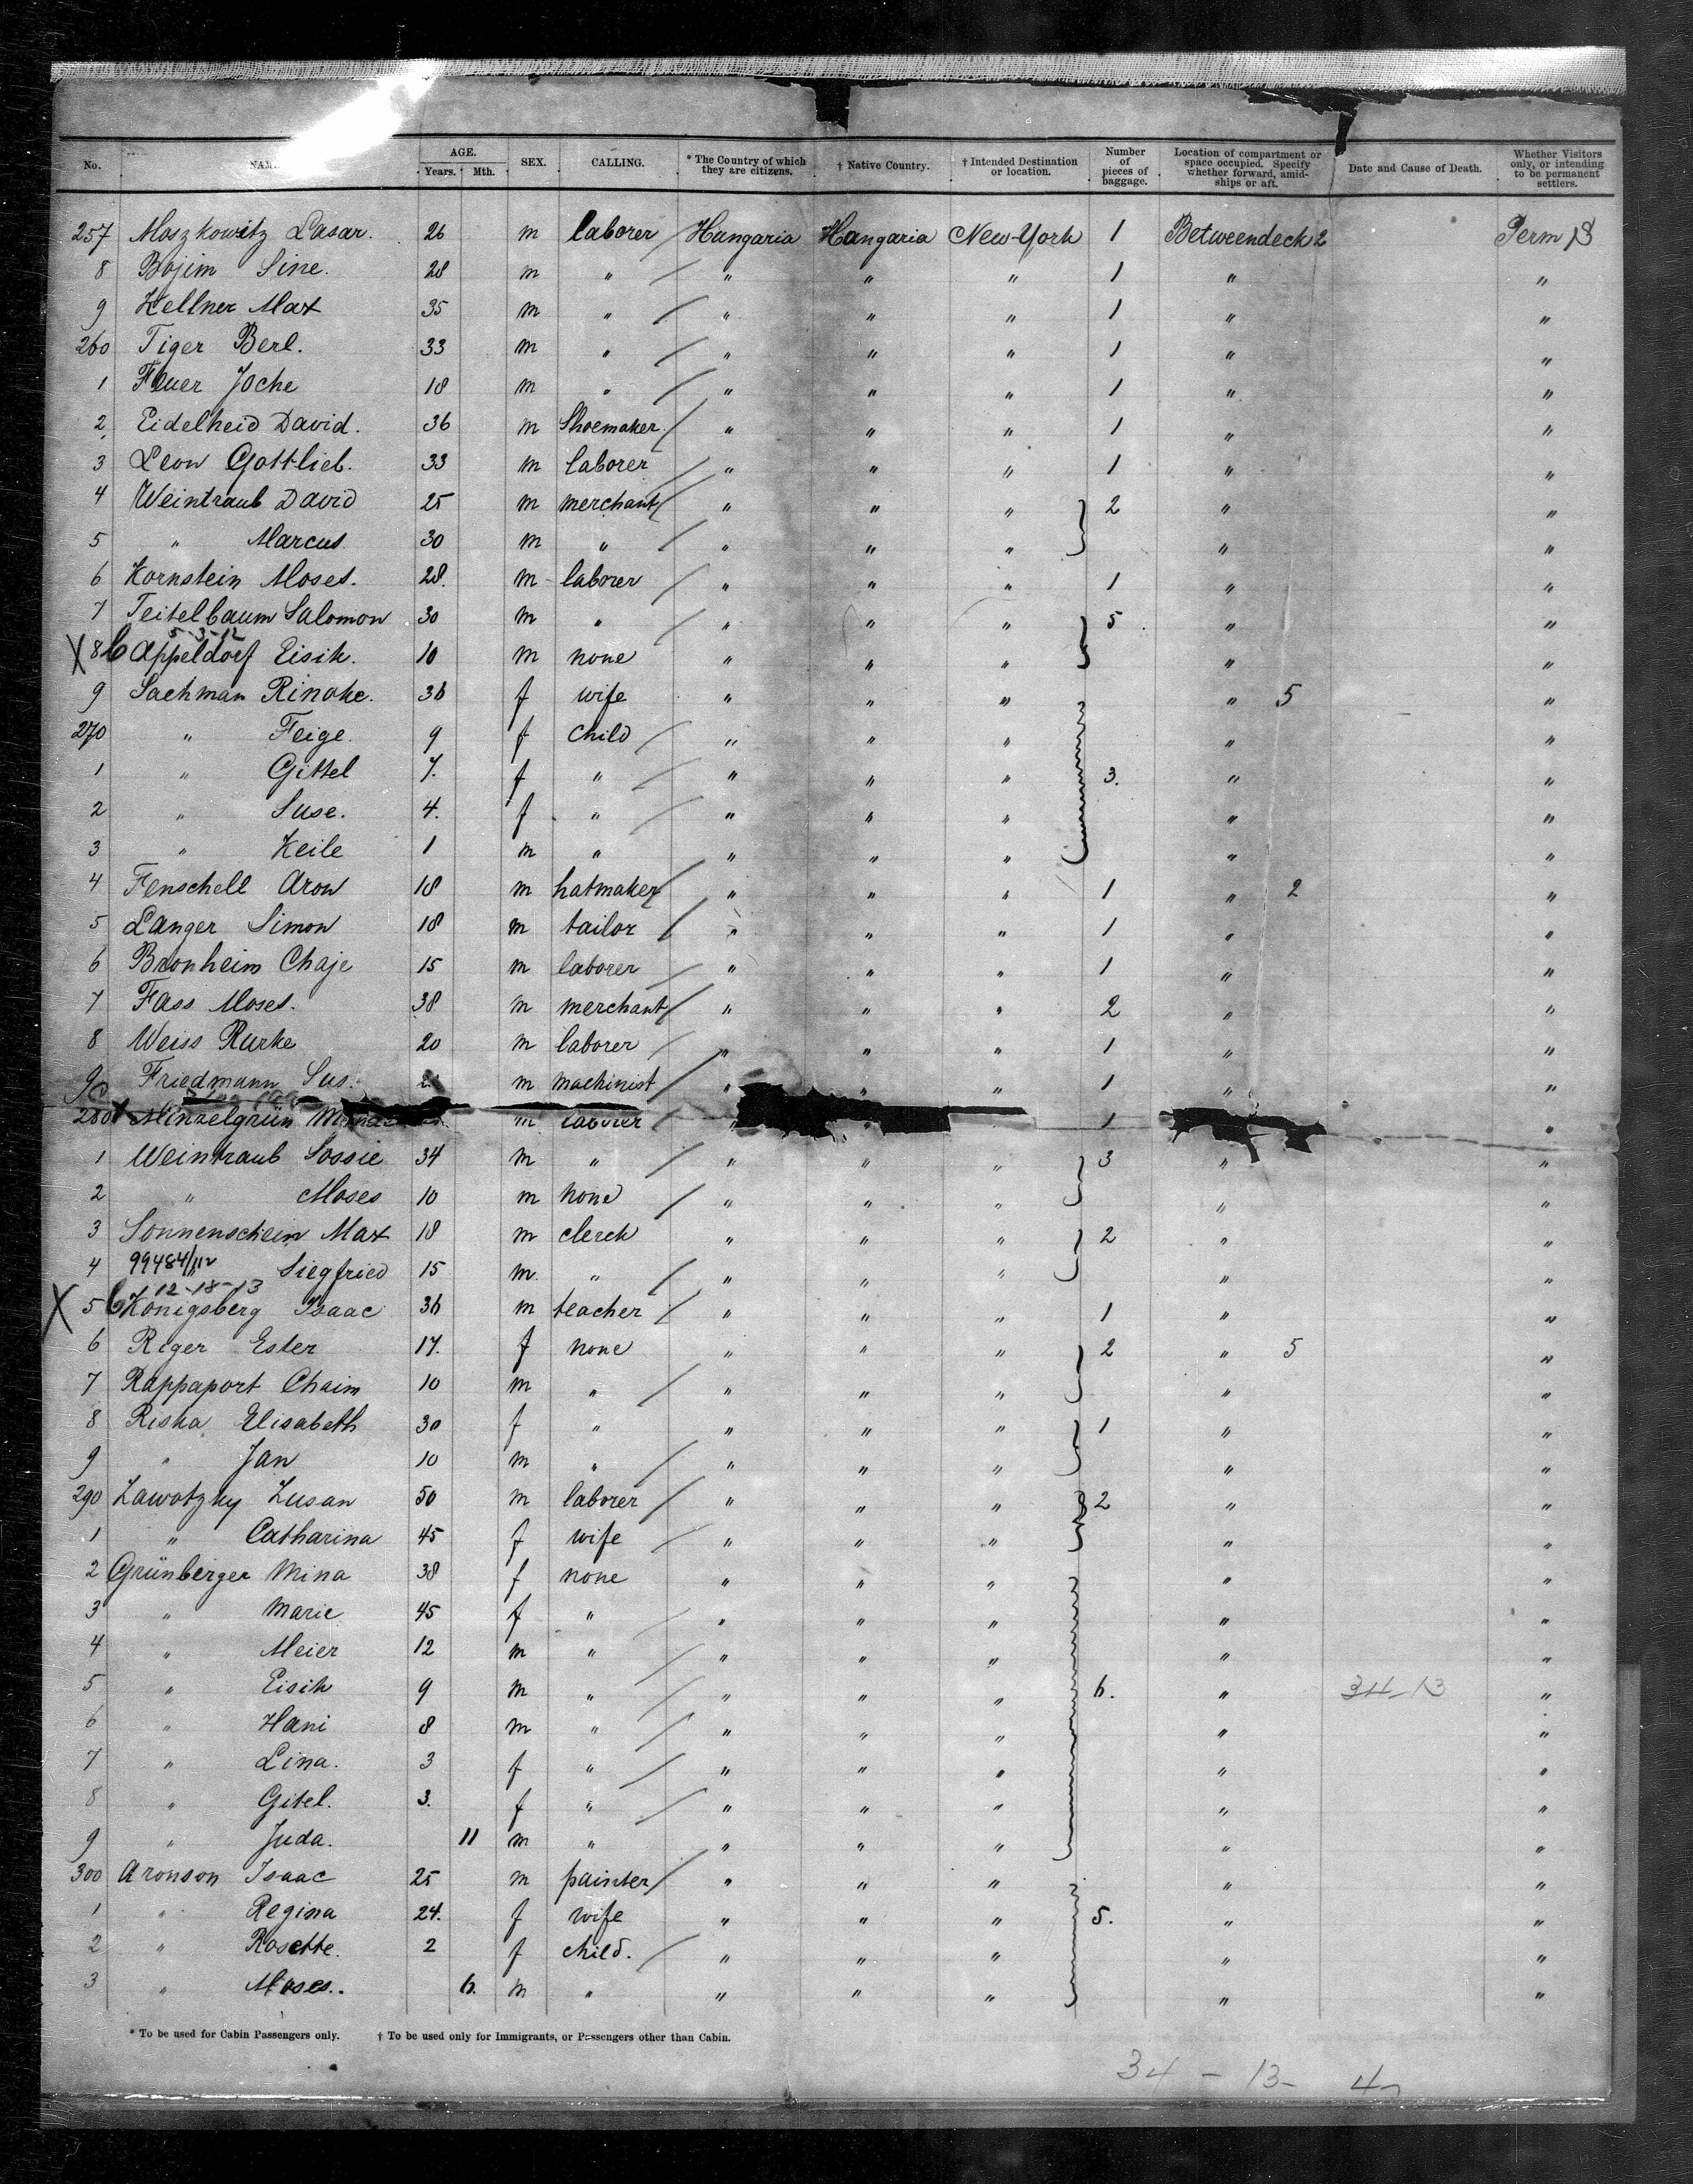 No. NAM AGE. Years. Mth. SEX. CALLING. * The Country of which they are citizens. † Native Country. † Intended Destination or location. Number of pieces of baggage. Location of compartment or space occupied. Specify whether forward, amidships or aft. Date and Cause of Death. Whether Visitors only, or intending to be permanent settlers.
257 Moszkowitz Lasar. 26 m laborer Hungaria Hungaria New-York 1 Betweendeck 2 Perm S
8 Bojim Sine. 28 m " " " " 1 " "
9 Kellner Max 35 m " " " " 1 " "
260 Tiger Berl. 33 m " " " " 1 " "
1 Feuer Joche 18 m " " " " 1 " "
2 Eidelheid David. 36 m Shoemaker. " " " 1 " "
3 Leon Gottlieb. 33 m laborer " " " 1 " "
4 Weintraub David 25 m merchant " " " 2 " "
5 " Marcus 30 m " " " " " "
6 Kornstein Moses. 28. m laborer " " " 1 " "
7 Teitelbaum Salomon 30 m " " " " 5 " "
5-3-12
X 8 Appeldorf Eisik. 10 m none " " " " "
9 Sachman Rinoke. 36 f wife " " " " 5 "
270 " Feige. 9 f child " " " " "
1 " Gittel 7. f " " " " 3. " "
2 " Suse. 4. f " " " " " "
3 " Keile 1 m " " " " " "
4 Fenschell Aron 18 m hatmaker " " " 1 " 2 "
5 Langer Simon 18 m tailor " " " 1 " "
6 Bronheim Chaje 15 m laborer " " " 1 " "
7 Fass Moses. 38 m merchant " " " 2 " "
8 Weiss Rurke 20 m laborer " " " 1 " "
9 Friedmann Sus. m machinist " " " 1 " "
280 Minzelgrün m laborer 1 "
1 Weintraub Sossie 34 m " " " " 3 " "
2 " Moses 10 m none " " " " "
3 Sonnenschein Max 18 m clerck " " " 2 " "
4 99484/112 Siegfried 15 m. " " " " " "
12-18-13
X 5 Königsberg Isaac 36 m teacher " " " 1 " "
6 Riger Ester 17. f none " " " 2 " 5 "
7 Rappaport Chaim 10 m " " " " " "
8 Riska Elisabeth 30 f " " " " 1 " "
9 " Jan 10 m " " " " " "
290 Zawatzky Zusan 50 m laborer " " " 2 " "
1 " Catharina 45 f wife " " " " "
2 Grünberger Mina 38 f none " " " " "
3 " Marie 45 f " " " " " "
4 " Meier 12 m " " " " " "
5 " Eisik 9 m " " " " 6. " "
6 " Hani 8 m " " " " " "
7 " Lina. 3 f " " " " " "
8 " Gitel. 3. f " " " " " "
9 " Juda. 11 m " " " " " "
300 Aronson Isaac 25 m painter " " " " "
1 " Regina 24. f wife " " " 5. " "
2 " Rosette. 2 f child. " " " " "
3 " Moses.. 6. m " " " " " "
* To be used for Cabin Passengers only. † To be used only for Immigrants, or Passengers other than Cabin.
34 - 13 - 4